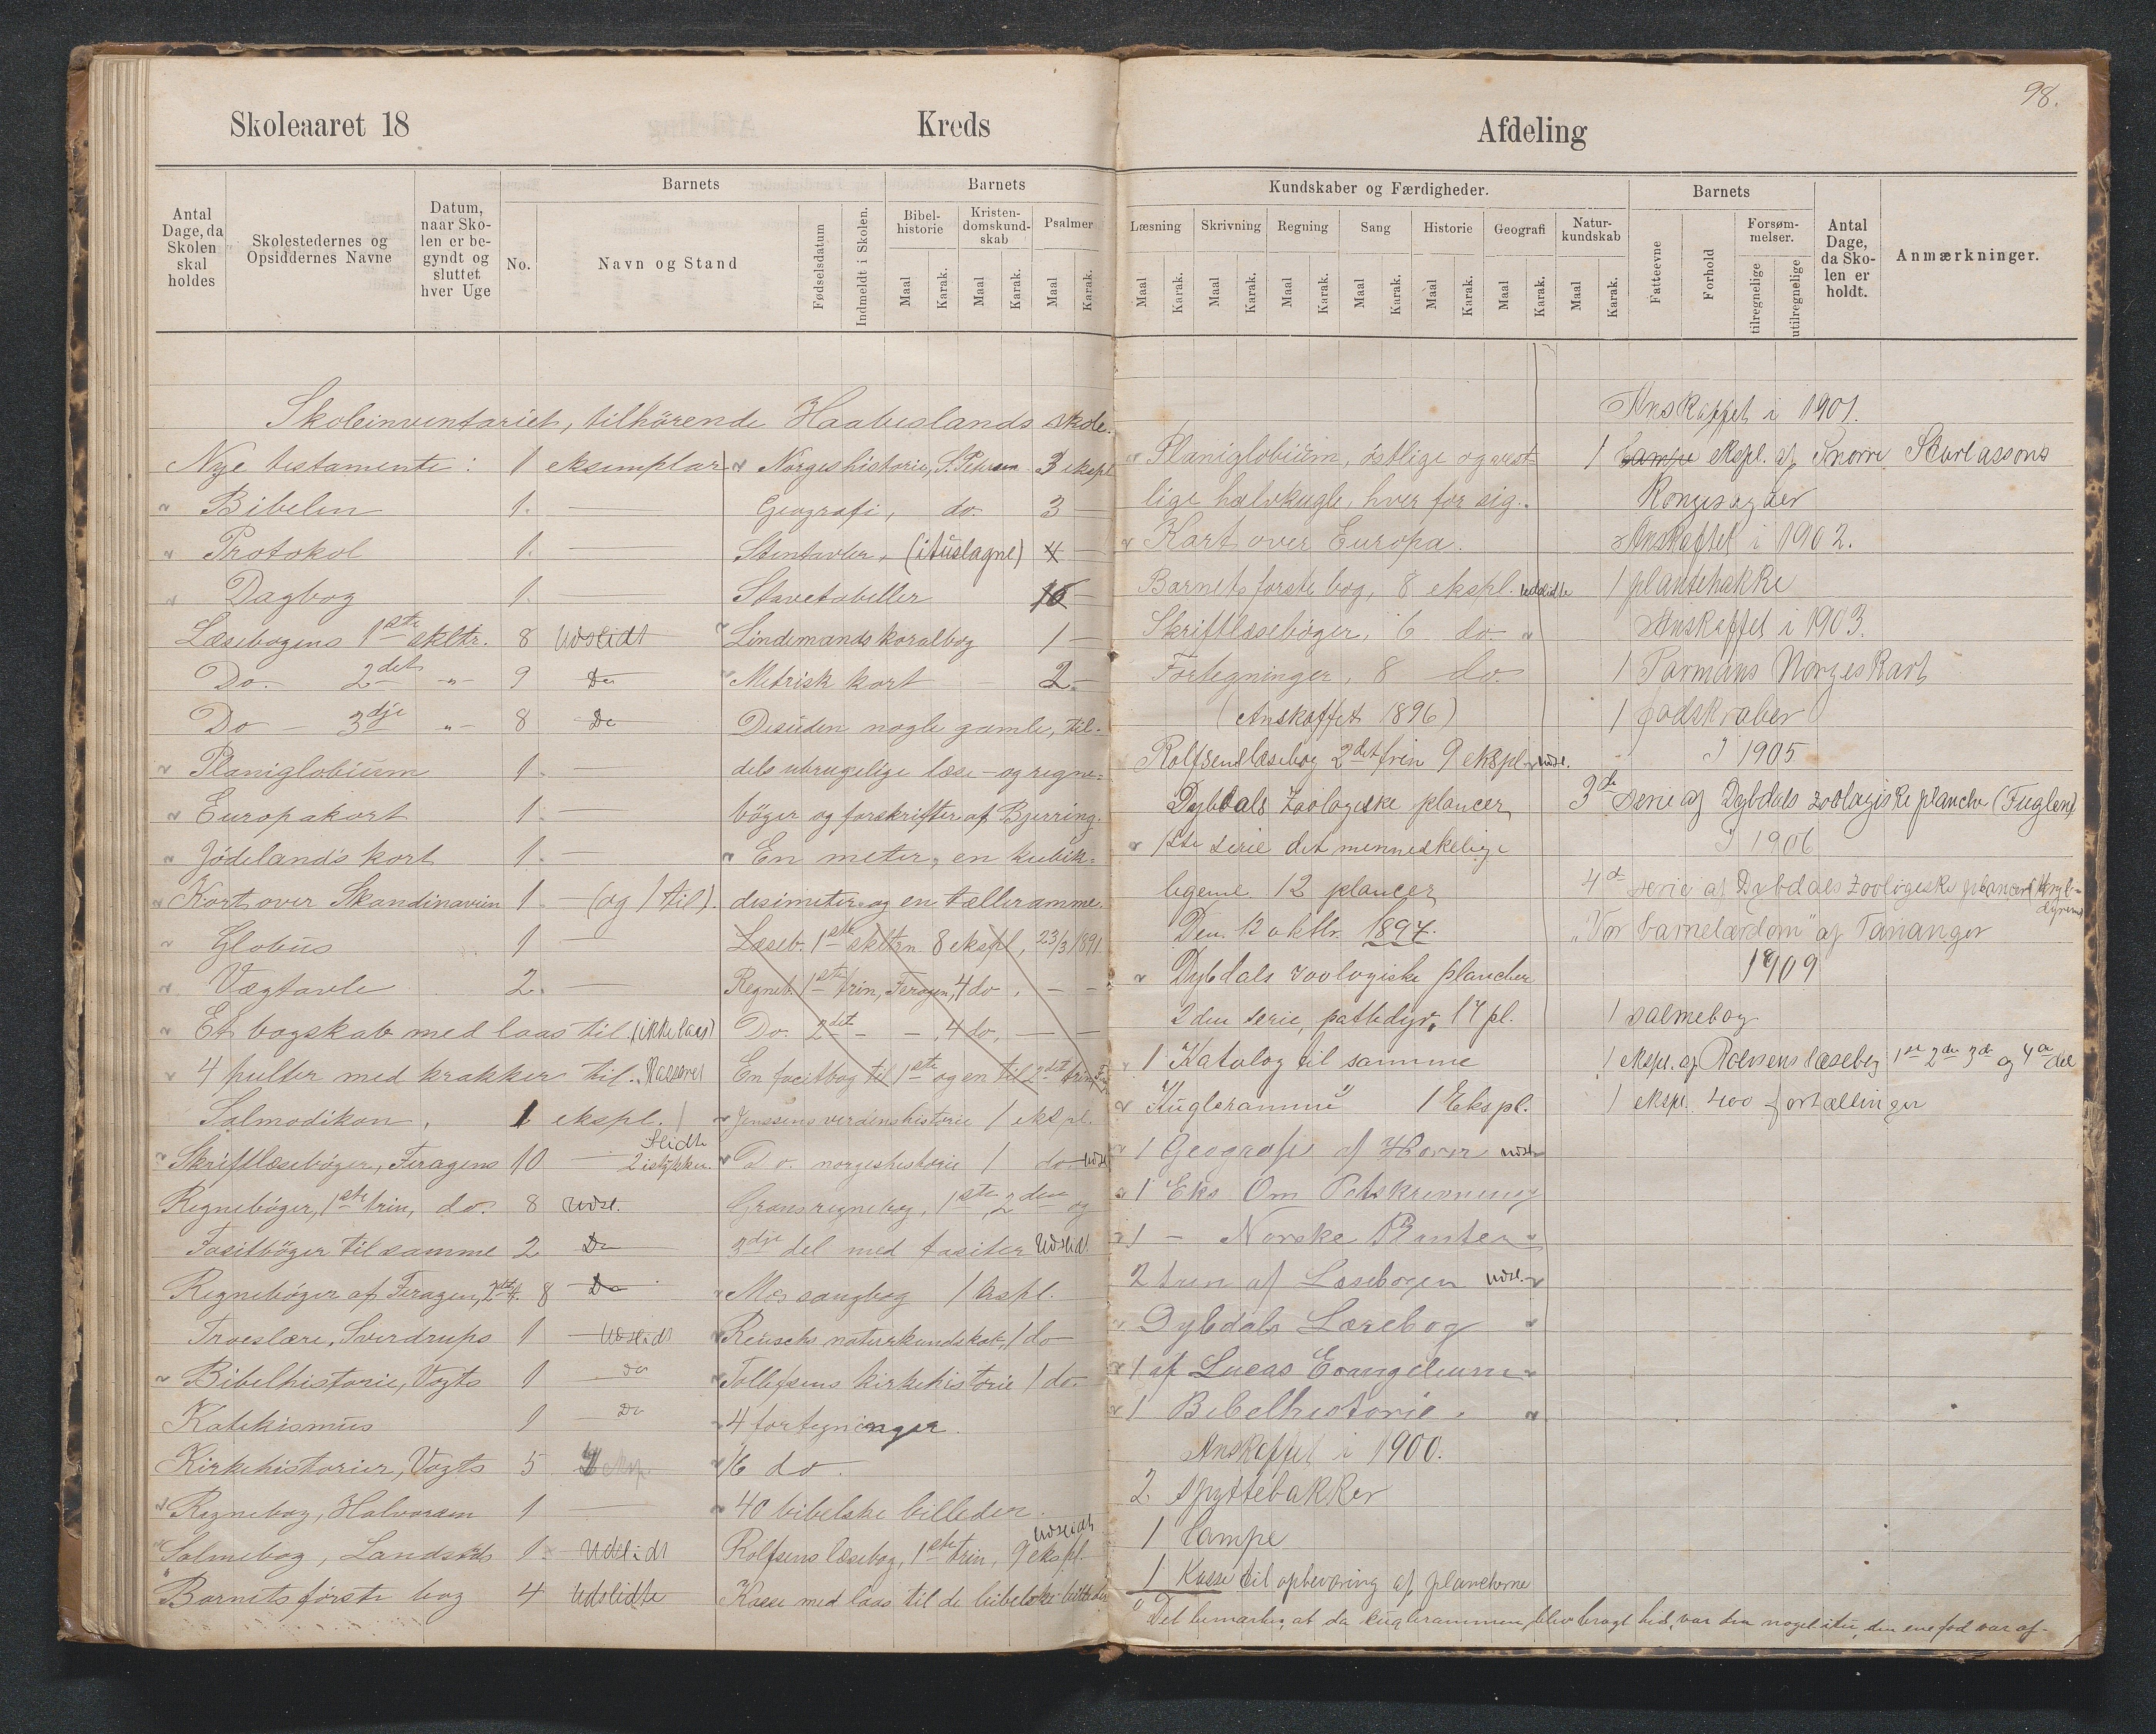 98.
Skoleaaret 18
Kreds
Afdeling
Antal Dage, da Skolen skal holdes
Skolestedernes og Opsiddernes Navne
Datum, naar Skolen er begyndt og sluttet hver Uge
Barnets
No.
Navn og Stand
Fødselsdatum
Indmeldt i Skolen.
Barnets
Bibelhistorie
Kristendomskundskab
Psalmer
Maal Karak. Maal Karak. Maal Karak.
Kundskaber og Færdigheder.
Læsning Skrivning Regning Sang Historie Geografi Naturkundskab
Maal Karak. Maal Karak. Maal Karak. Maal Karak. Maal Karak. Maal Karak. Maal Karak.
Barnets
Fatteevne
Forhold
Forsømmelser.
tilregnelige
utilregnelige
Antal Dage, da Skolen er holdt.
Anmærkninger.
Skoleinventariet, tilhörende Haabeslands skole.
Nye testamente: 1 eksemplar
Bibelen 1. —
Protokol 1. —
Dagbog 1. —
Læsebogens 1ste skltr. 8 Udslidt
Do. 2det -"- 9 Do
Do — 3dje -"- 8 Do
Planiglobium 1. —
Europakort 1. —
Jödelands kort 1. —
Kort over Skandinavien 1. — (og 1 til).
Globus 1 —
Vægtavle 2. —
Et bogskab med laas til. (ikke laas)
4 pulter med krakker til.
Salmodikon, 1 ekspl.
Skriftlæsebøger, Feragens 10 — Slidte 2 istykker.
Regnebøger, 1ste trin, do. 8 Udsl.
Fasitbøger til samme 2 Do
Regnebøger af Feragen, 8 Do
Troeslære, Sverdrups 1 Udslidt
Bibelhistorie, Vogts 1 Do
Katekismus 1 Do
Kirkehistorier, Vogts 5
Regnebog, Halvorsen 1 —
Salmebog, Landstads 1. Udslidt
Barnets første bog 4 Udslidte
Norgeshistorie, S. Petersen 3 ekspl
Geografi, do. 3 —
Stentavler, (ituslagne) 4 —
Stavetabeller 16
Lindemands koralbog 1 —
Metrisk kort 2. —
Desuden nogle gamle, til-
dels ubrugelige læse- og regne-
bøger og forskrifter af Bjerring.
En meter, en kubik-
desimeter og en tælleramme.
Læseb. 1ste skltrn 8 ekspl, 23/3 1891.
Regneb. 1ste trin, Feragen, 4 do, — —
Do. 2det — — 4 do, — —
En facitbog til 1ste og en til 2det trin,
Jenssens verdenshistorie 1 ekspl.
Do. norgeshistorie 1 do. Udsl.
Grans regnebog, 1ste, 2den og
3dje del med fasiter Udslidt.
Mos sangbog 1 ekspl.
Reuschs naturkundskab, 1 do
Tollefsens kirkehistorie 1 do.
4 fortegninger.
16 do.
40 bibelske billeder.
Rolfsens læsebog, 1ste trin, 9 ekspl. Udslidt
Kasse med laas til de bibelske billeder
Planiglobium, östlige og vest-
lige halvkugle, hver for sig.
Kart over Europa.
Barnets første bog, 8 ekspl. Udslidte
Skriftlæsebøger, 6 do "
Fortegninger, 8 do.
(Anskaffet 1896)
Rolfsens læsebog 2det trin 9 ekspl. Udsl.
Dybdals Zoologiske plancer
1ste serie det menneskelige
legeme 12 plancer
Den 12 oktbr. 1897.
Dybdals zoologiske plancher
2den serie, pattedyr, 17 pl.
1 Katalog til samme
Kugleramme 1 Ekspl.
1 Geografi af Horn Udsl.
1 Eks Om Retskrivning
1 — Norske Planter
2 trin af Læsebogen Udsl.
Dybdals Lærebog "
1 af Lucas Evangelium
1 Bibelhistorie.
Anskaffet i 1900.
2 Spyttebakker
1 Lampe
1 Kasse til opbevaring af plancherne
Det bemærkes, at da kuglerammen blev bragt hid, var den noget itu, den ene fod var af-
Anskaffet i 1901.
1 Lampe ekspl. af Snorre Sturlassons
Kongesagaer
Anskaffet i 1902.
1 plantehakke
Anskaffet i 1903.
1 Norgeskart
1 fodskraber
I 1905
3de serie af Dybdals zoologiske plancher (Fuglene)
I 1906
4de serie af Dybdals Zoologiske plancer (Krybdyrene)
"Vor barnelærdom" af Tananger
1909
1 salmebog
1 ekspl. af Rolfsens læsebog 1ste 2den 3de og 4de del
1 ekspl. 400 fortællinger